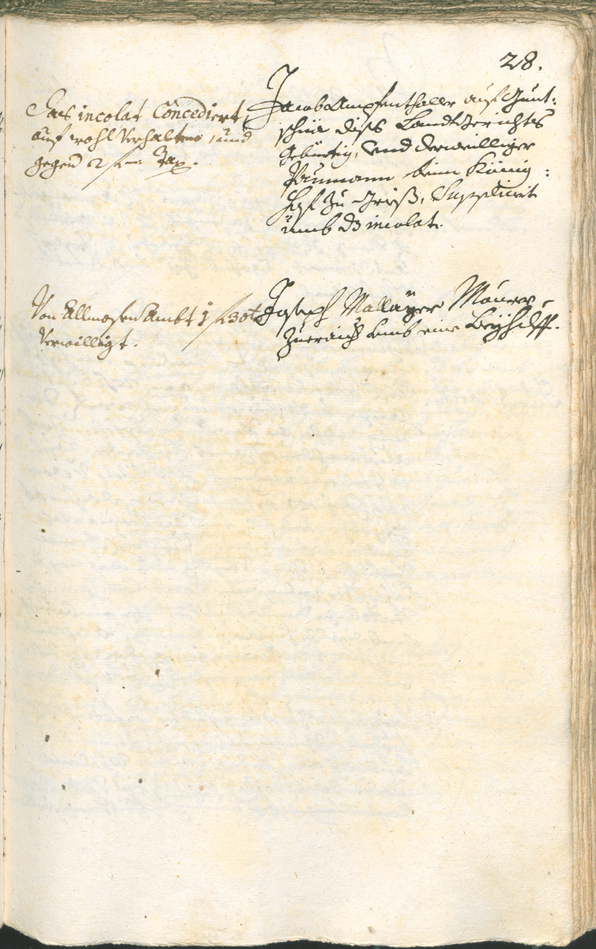 28.
Das incolat Concediert,
auf wohl Verhalten, und
gegen 2 f Tax.
Jacob Ampfenthaller auß Gunt:
schna diß Landtgerichts
gebürtig, und derweilliger
Paumann beim König:
hof zu Grieß, Supplicirt
umb d. incolat.
Von Allmosen Ambt 1 f 30
verwilligt.
Joseph Mallayer Maurer
umb eine Beyhilff.